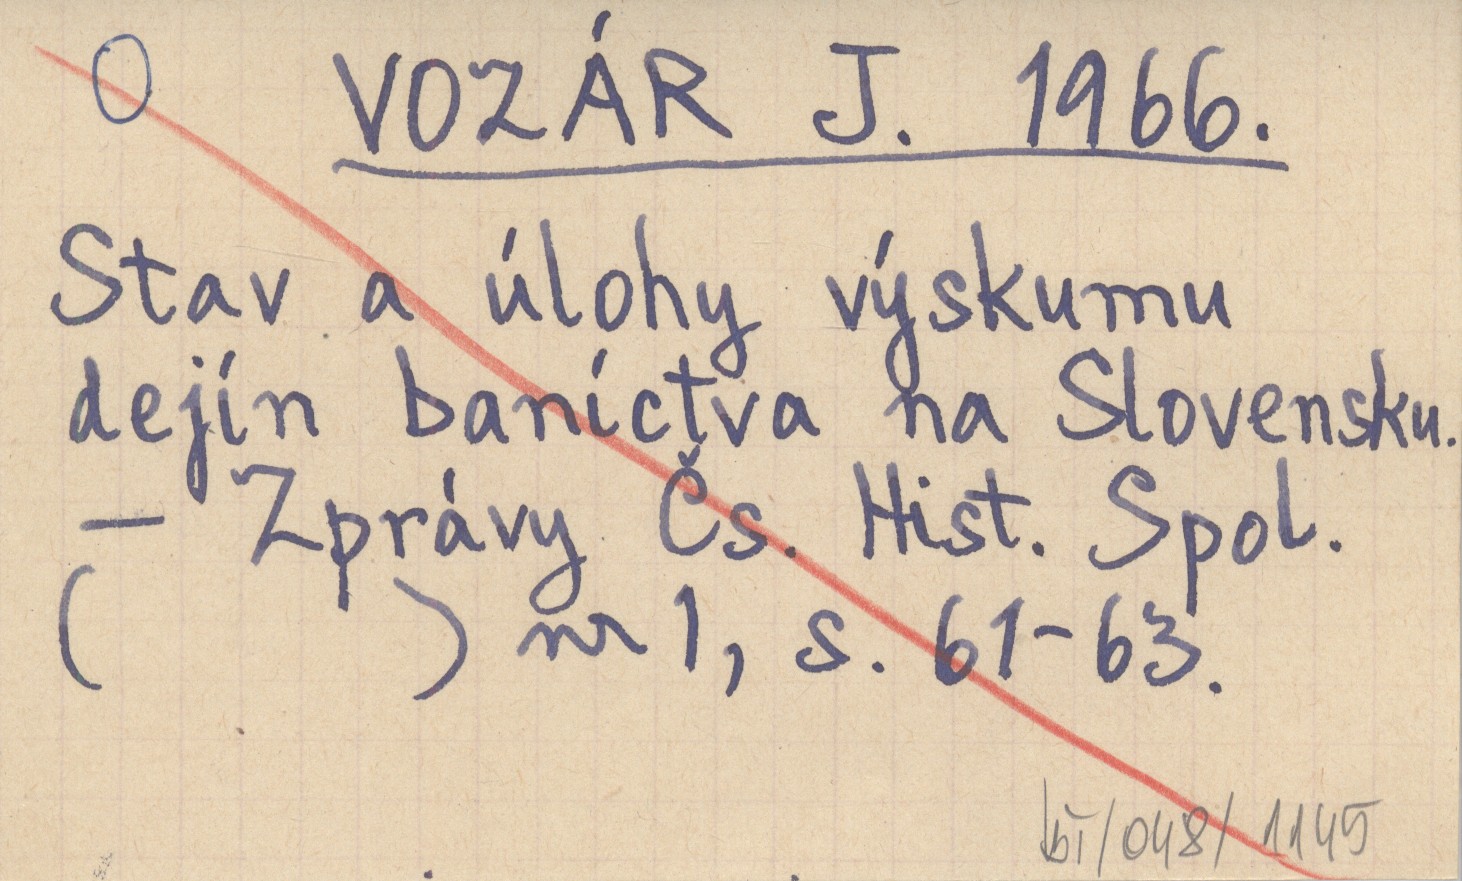 O VOZÁR J. 1966.
Stav a úlohy výskumu
dejín baníctva na Slovensku.
— Zprávy Čs. Hist. Spol.
( ) nr 1, s. 61-63.
/048/1145